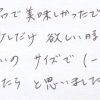 品で美味しかったで
少しだけ 欲しい時
いの サイズで (一
たら と思いました